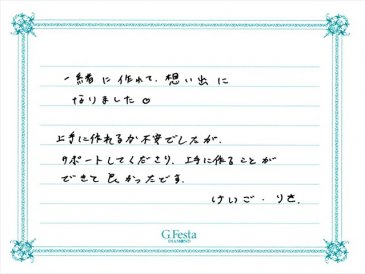 一緒に作れて、想い出に
なりました。
上手に作れるか不安でしたが、
サポートしてくださり、上手に作ることが
できて良かったです。
けいご・りさ
G.Festa
DIAMOND